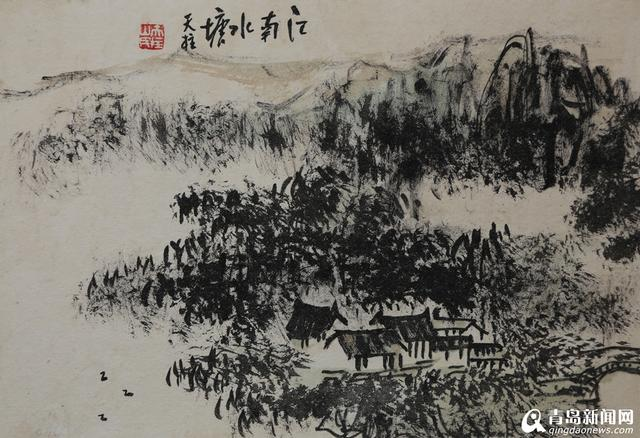 江南水塘
天柱
青岛新闻网
qingdaonews.com